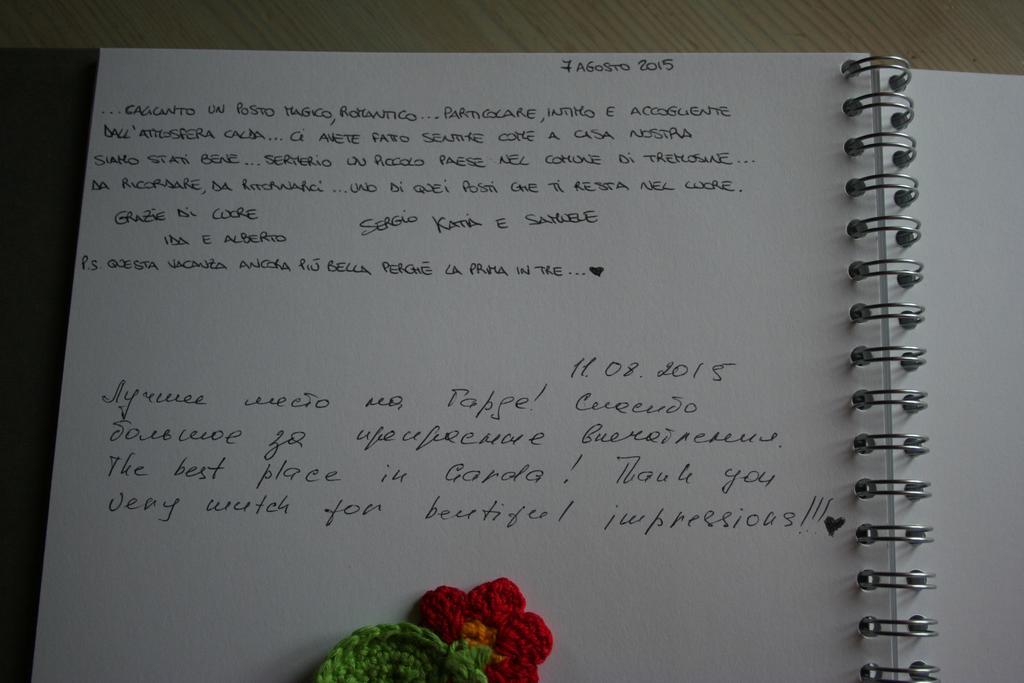 7 AGOSTO 2015
... UN POSTO MAGICO, ROMANTICO... PARTICOLARE, INTIMO E ACCOGLIENTE
DALL'ATMOSFERA CALDA... CI AVETE FATTO SENTIRE COME A CASA NOSTRA
SIAMO STATI BENE... SERMERIO UN PICCOLO PAESE NEL COMUNE DI TREMOSINE...
DA RICORDARE, DA RITORNARCI... UNO DI QUEI POSTI CHE TI RESTA NEL CUORE.
GRAZIE DI CUORE SERGIO KATIA E SAMUELE
IDA E ALBERTO
P.S. QUESTA VACANZA ANCORA PIÙ BELLA PERCHÈ LA PRIMA IN TRE... ♥
11.08.2015
Лучшее место на Гарде! Спасибо
большое за прекрасные впечатления.
The best place in Garda! Thank you
very mutch for beutiful impressions!!! ♥